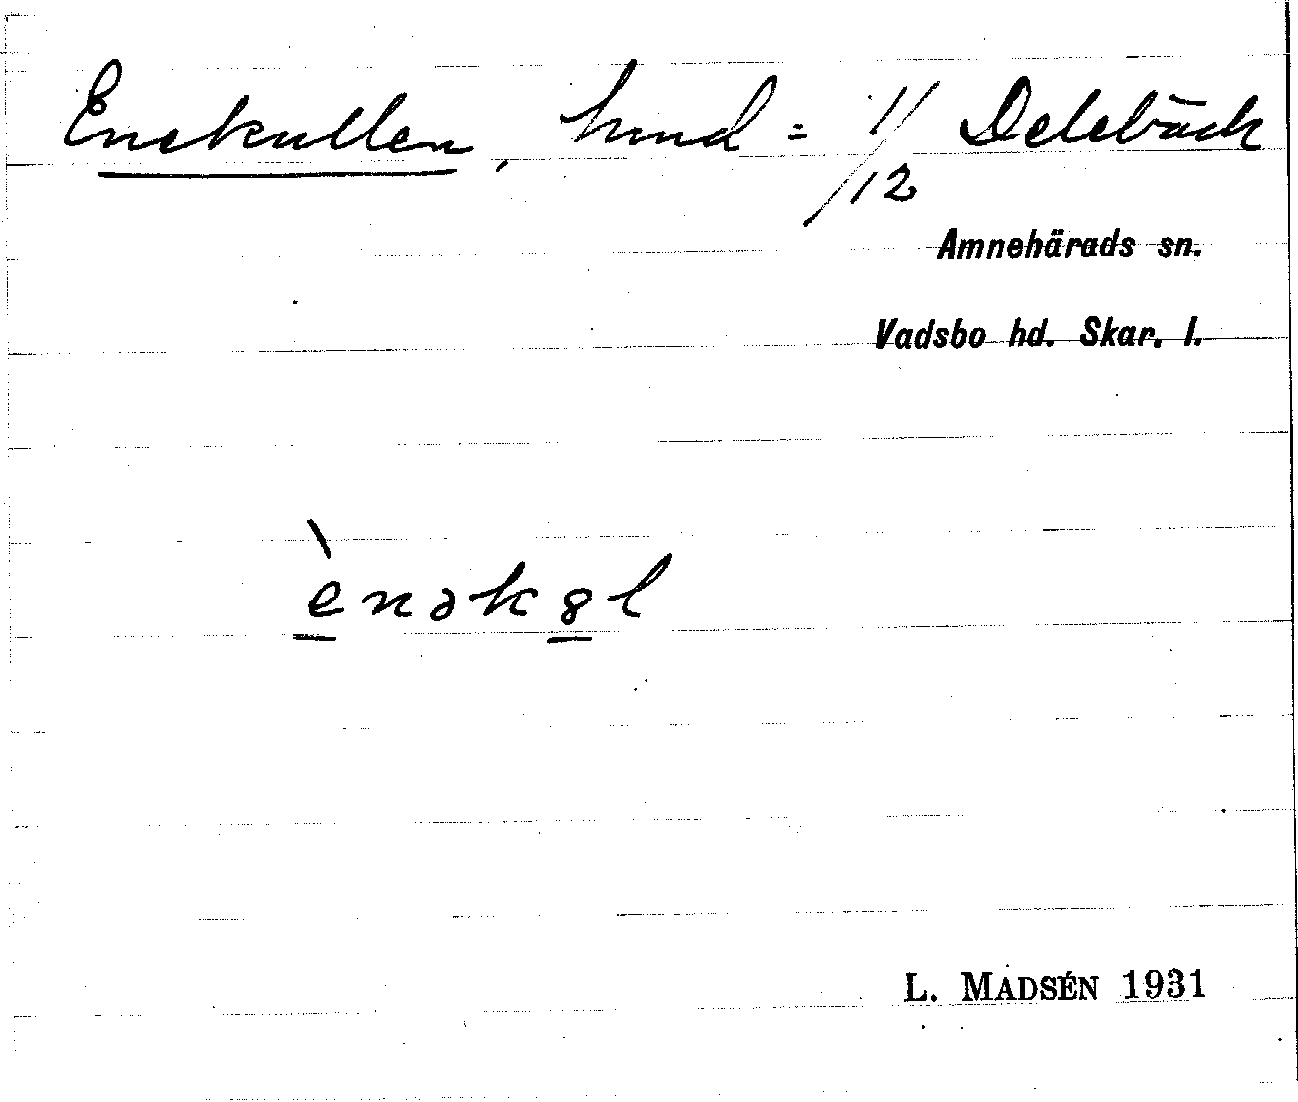 Enekullen, hmd = 1/12 Delebäck
Amnehärads sn.
Vadsbo hd. Skar. l.
è̲nək8̲l
L. MADSÉN 1931